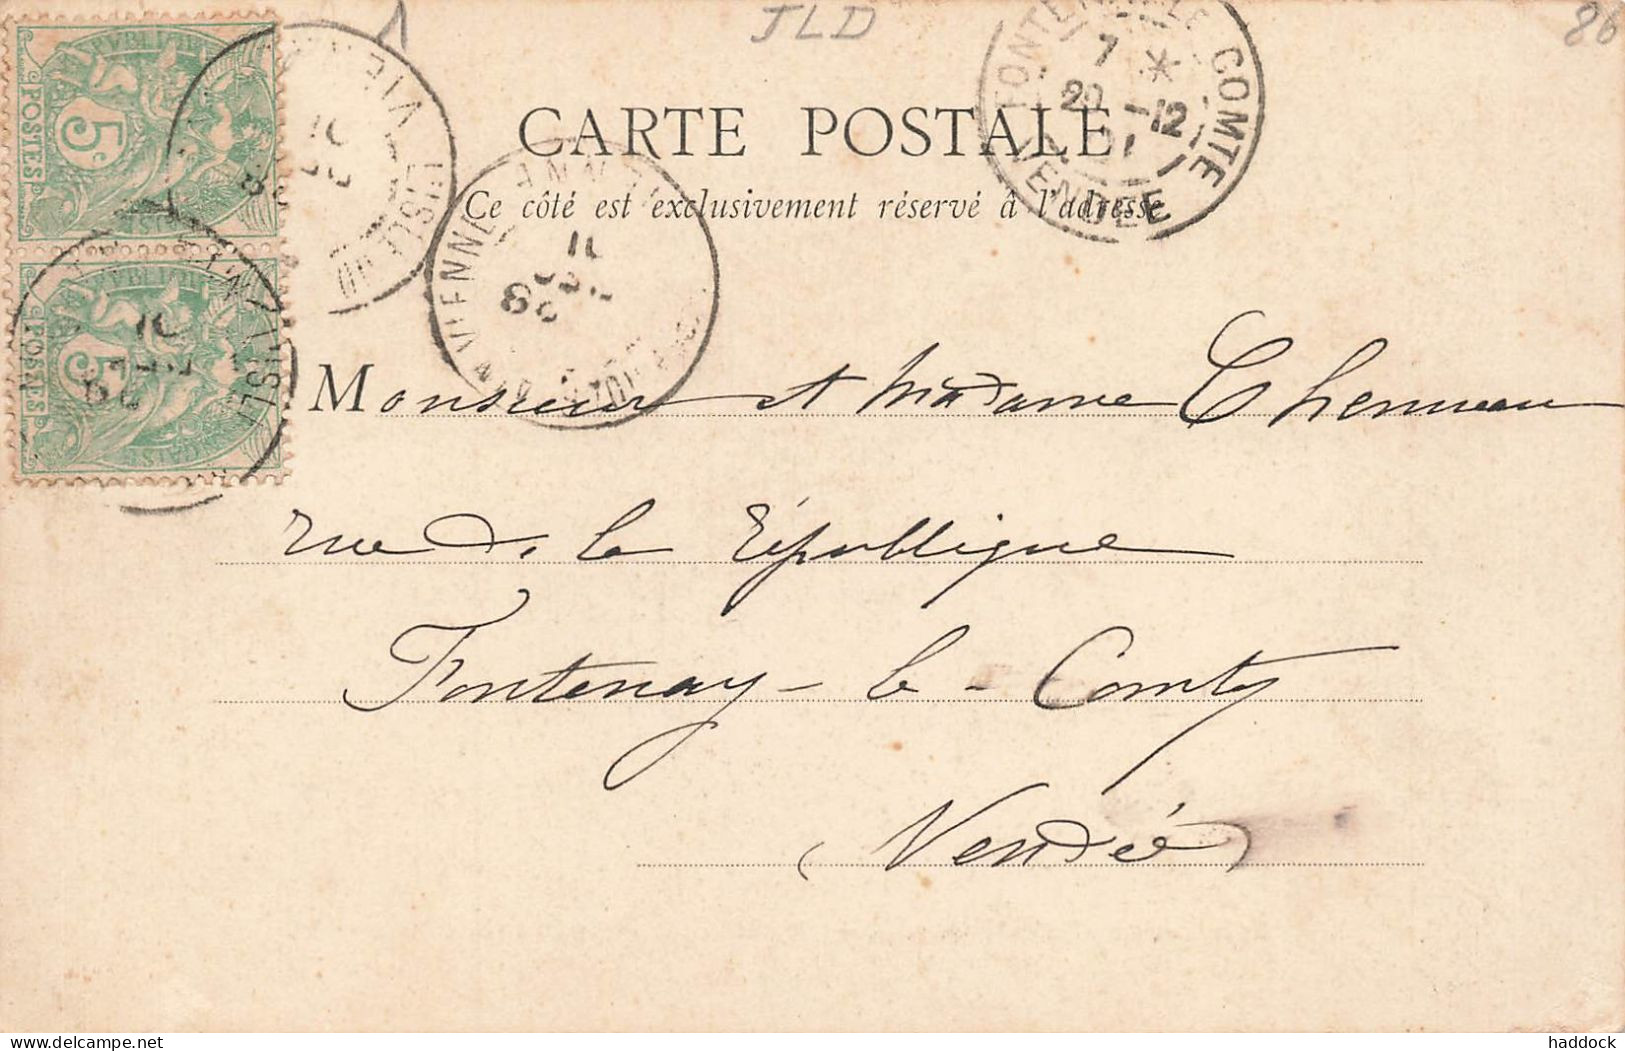 JLD
86
5c
POSTES
5c
POSTES
FONTENAY LE COMTE
7 *
20 -12
01
VENDÉE
CARTE POSTALE
Ce côté est exclusivement réservé à l'adresse
VIENNE
Monsieur et Madame Thenneau
rue de la République
Fontenay-le-Comte
(Vendée)
delcampe.net
haddock